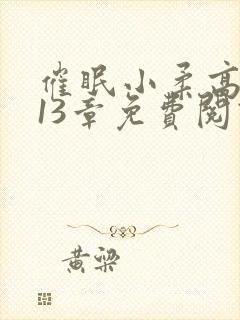 催眠小柔高
13章免費閱
黃梁